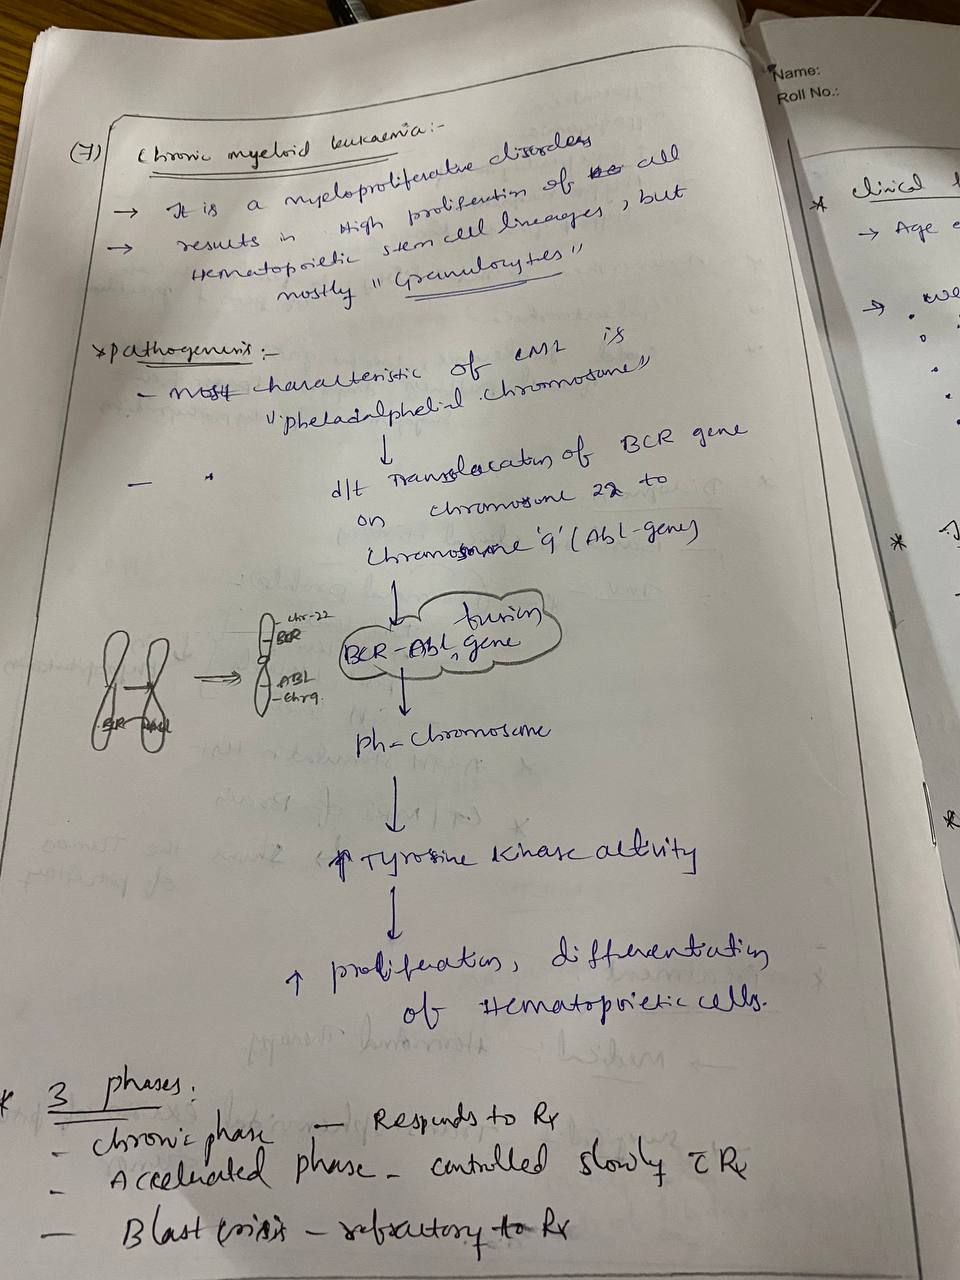 (7) Chronic myeloid leukaemia:-
→ It is a myeloproliferative disorders
→ results in High proliferation of all
Hematopoietic stem cell lineages, but
mostly "Granulocytes"
*pathogenesis:-
- most characteristic of CML is
"pheladalphelial chromosome"
↓
d/t Translocation of BCR gene
on chromosome 22 to
chromosome '9' (Abl-gene)
↓
BCR-Abl, fusion gene
chr-22
BCR
ABL
chr9
BCR
↓
ph-chromosome
↓
↑ Tyrosine kinase activity
↓
↑ proliferation, differentiation
of Hematopoietic cells.
* 3 phases:
- chronic phase - Responds to Rx
- Accelerated phase - controlled slowly c̄ Rx
- Blast crisis - refractory to Rx
Name:
Roll No.:
* clinical
→ Age
→ we
*
*